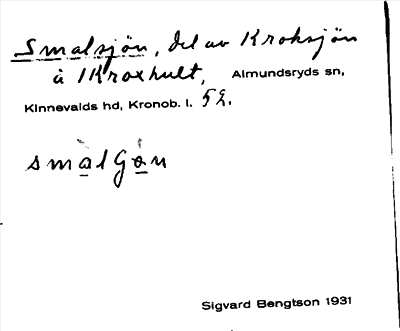 Smalsjön, del av Kroksjön
å Kroxhult, Almundsryds sn,
Kinnevalds hd, Kronob. l.
smalGøn
Sigvard Bengtson 1931